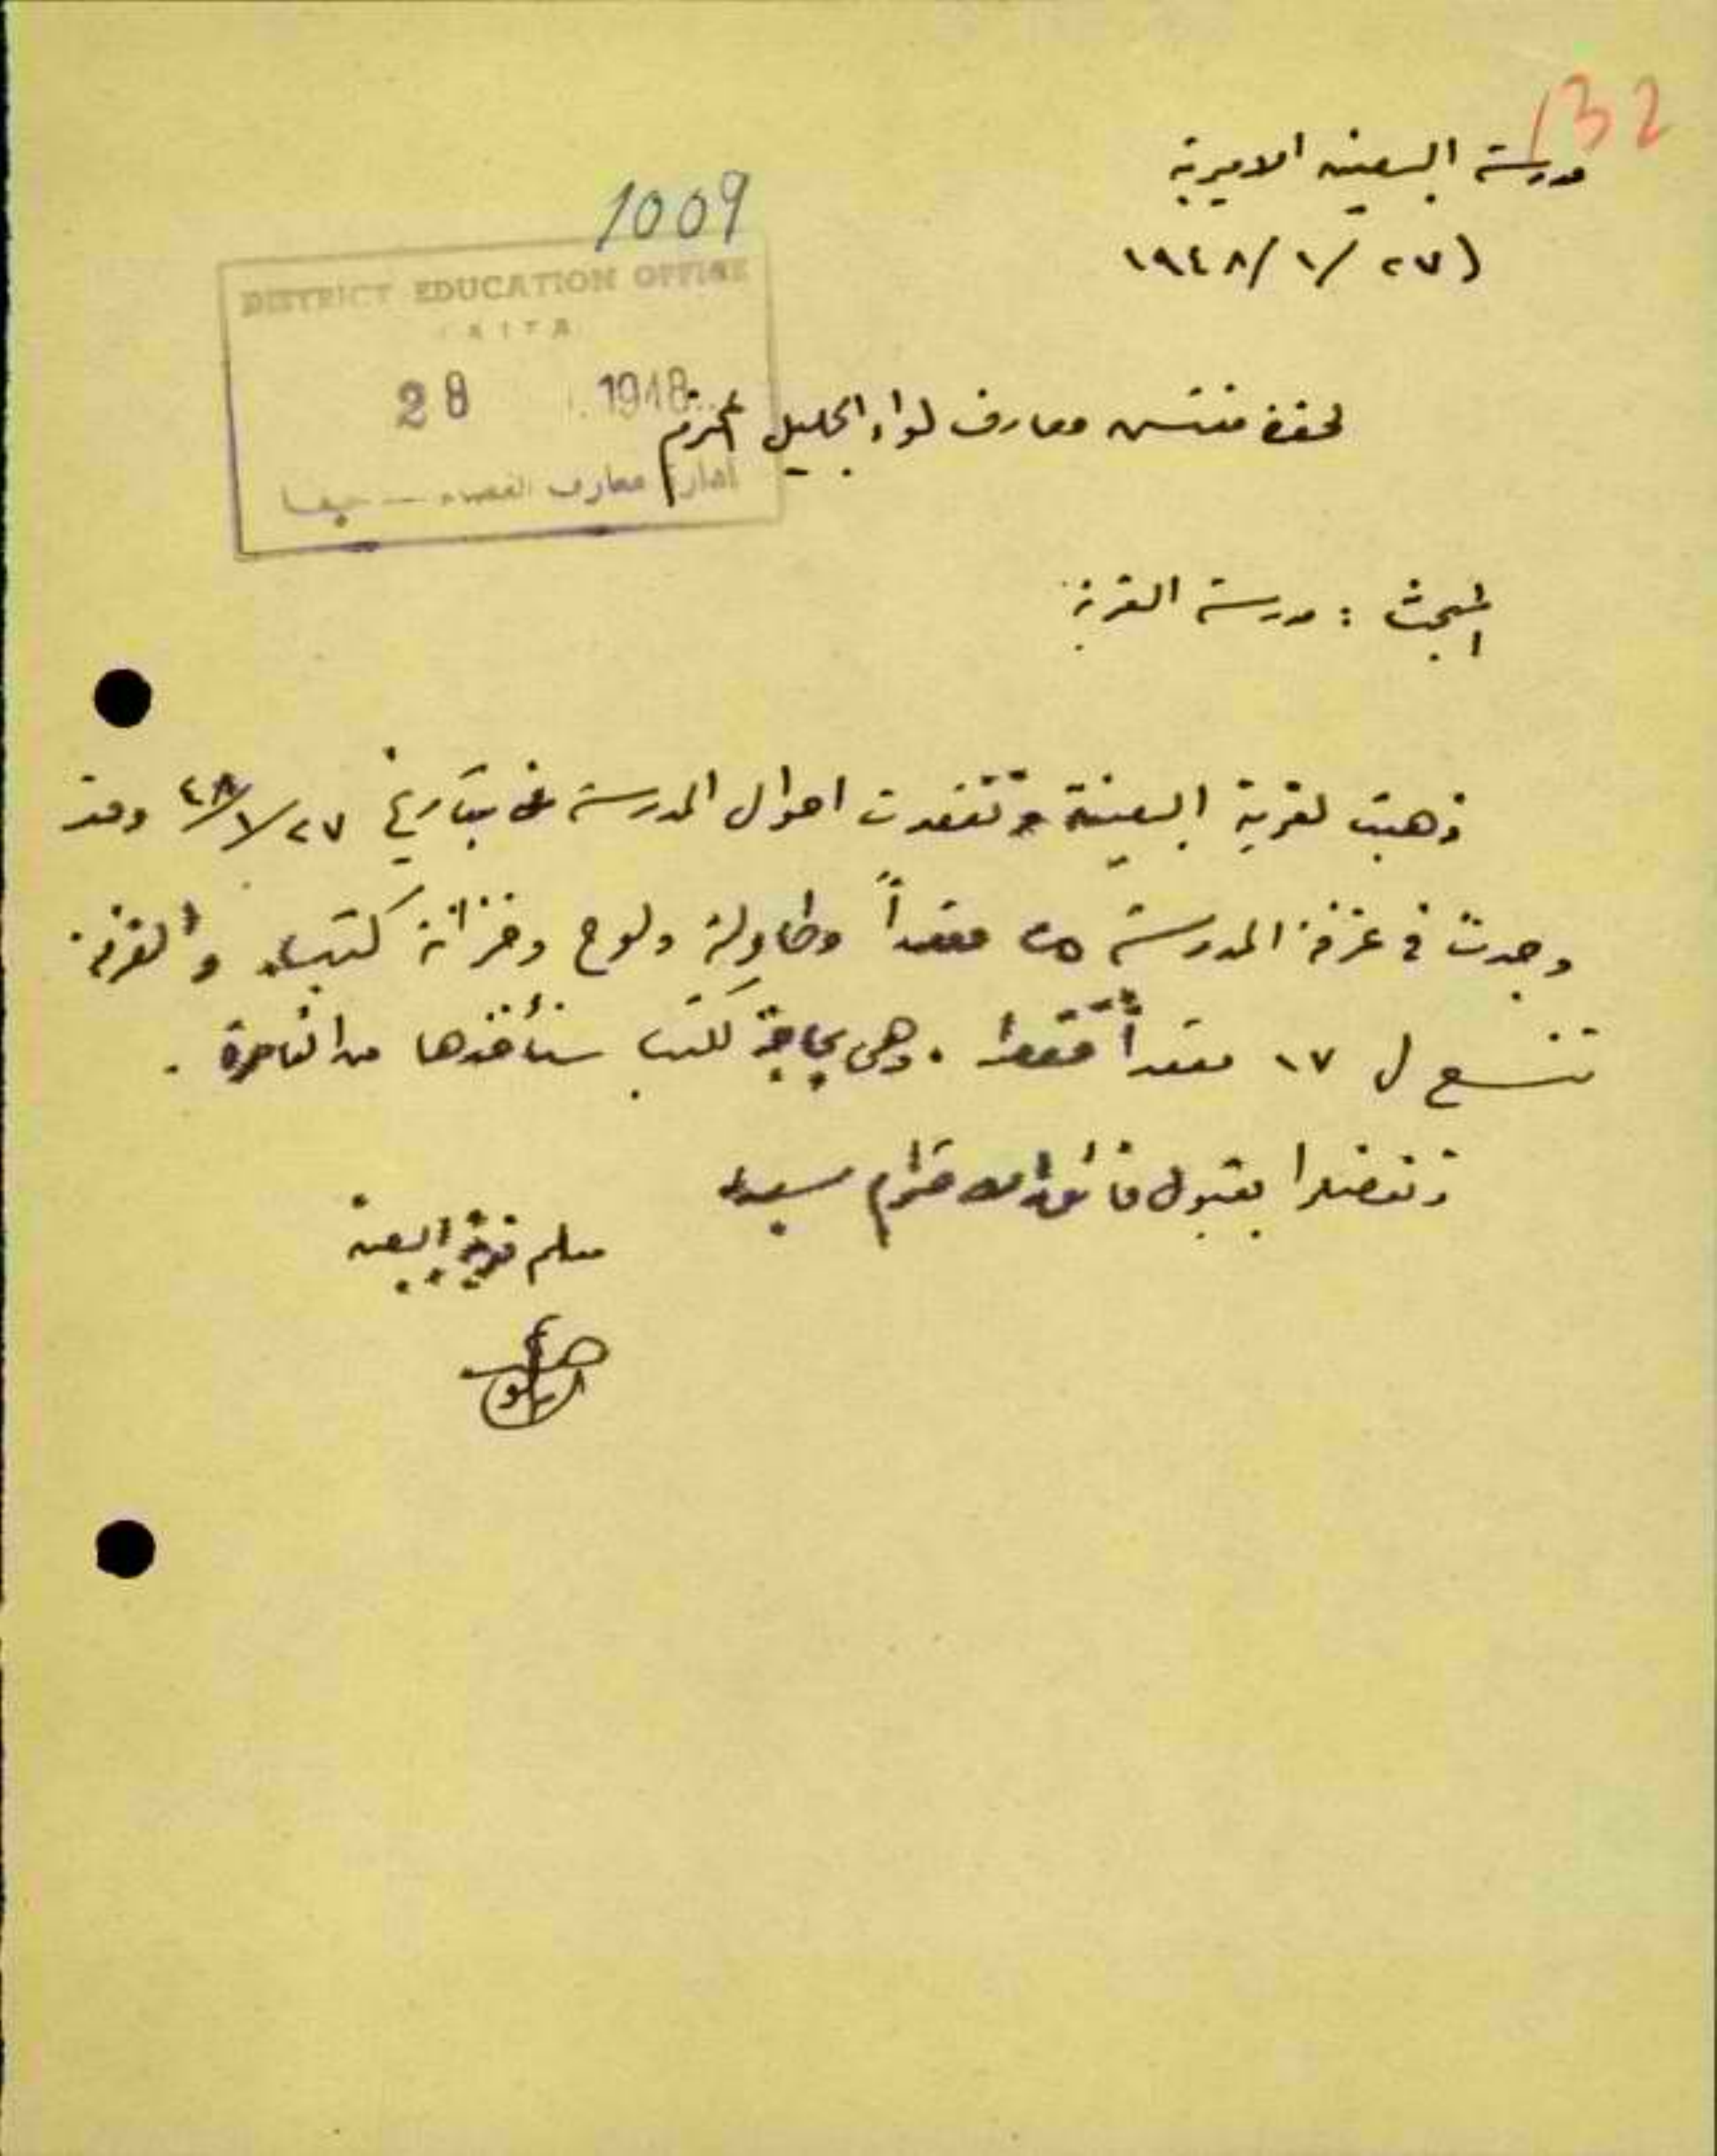 132
مدرسة البعينه الاميرية
١٩٤٨/١/٢٧
1009
DISTRICT EDUCATION OFFICE
28 1948
ادارة معارف القضاء — حيفا
لحضرة مفتش معارف لواء الجليل المحترم
المبحث : مدرسة القرية
ذهبت لقرية البعينة وتفقدت احوال المدرسة بتاريخ ٤٨/١/٢٧ وقد
وجدت في غرفة المدرسة ٢٥ مقعداً وطاولة ولوح وخزانة كتب والغرفة
تتسع ل ١٧ مقعداً فقط . وهي بحاجة لكتب سنأخذها من الناصرة .
وتفضلوا بقبول فائق الاحترام سيدي
معلم قرية البعينه